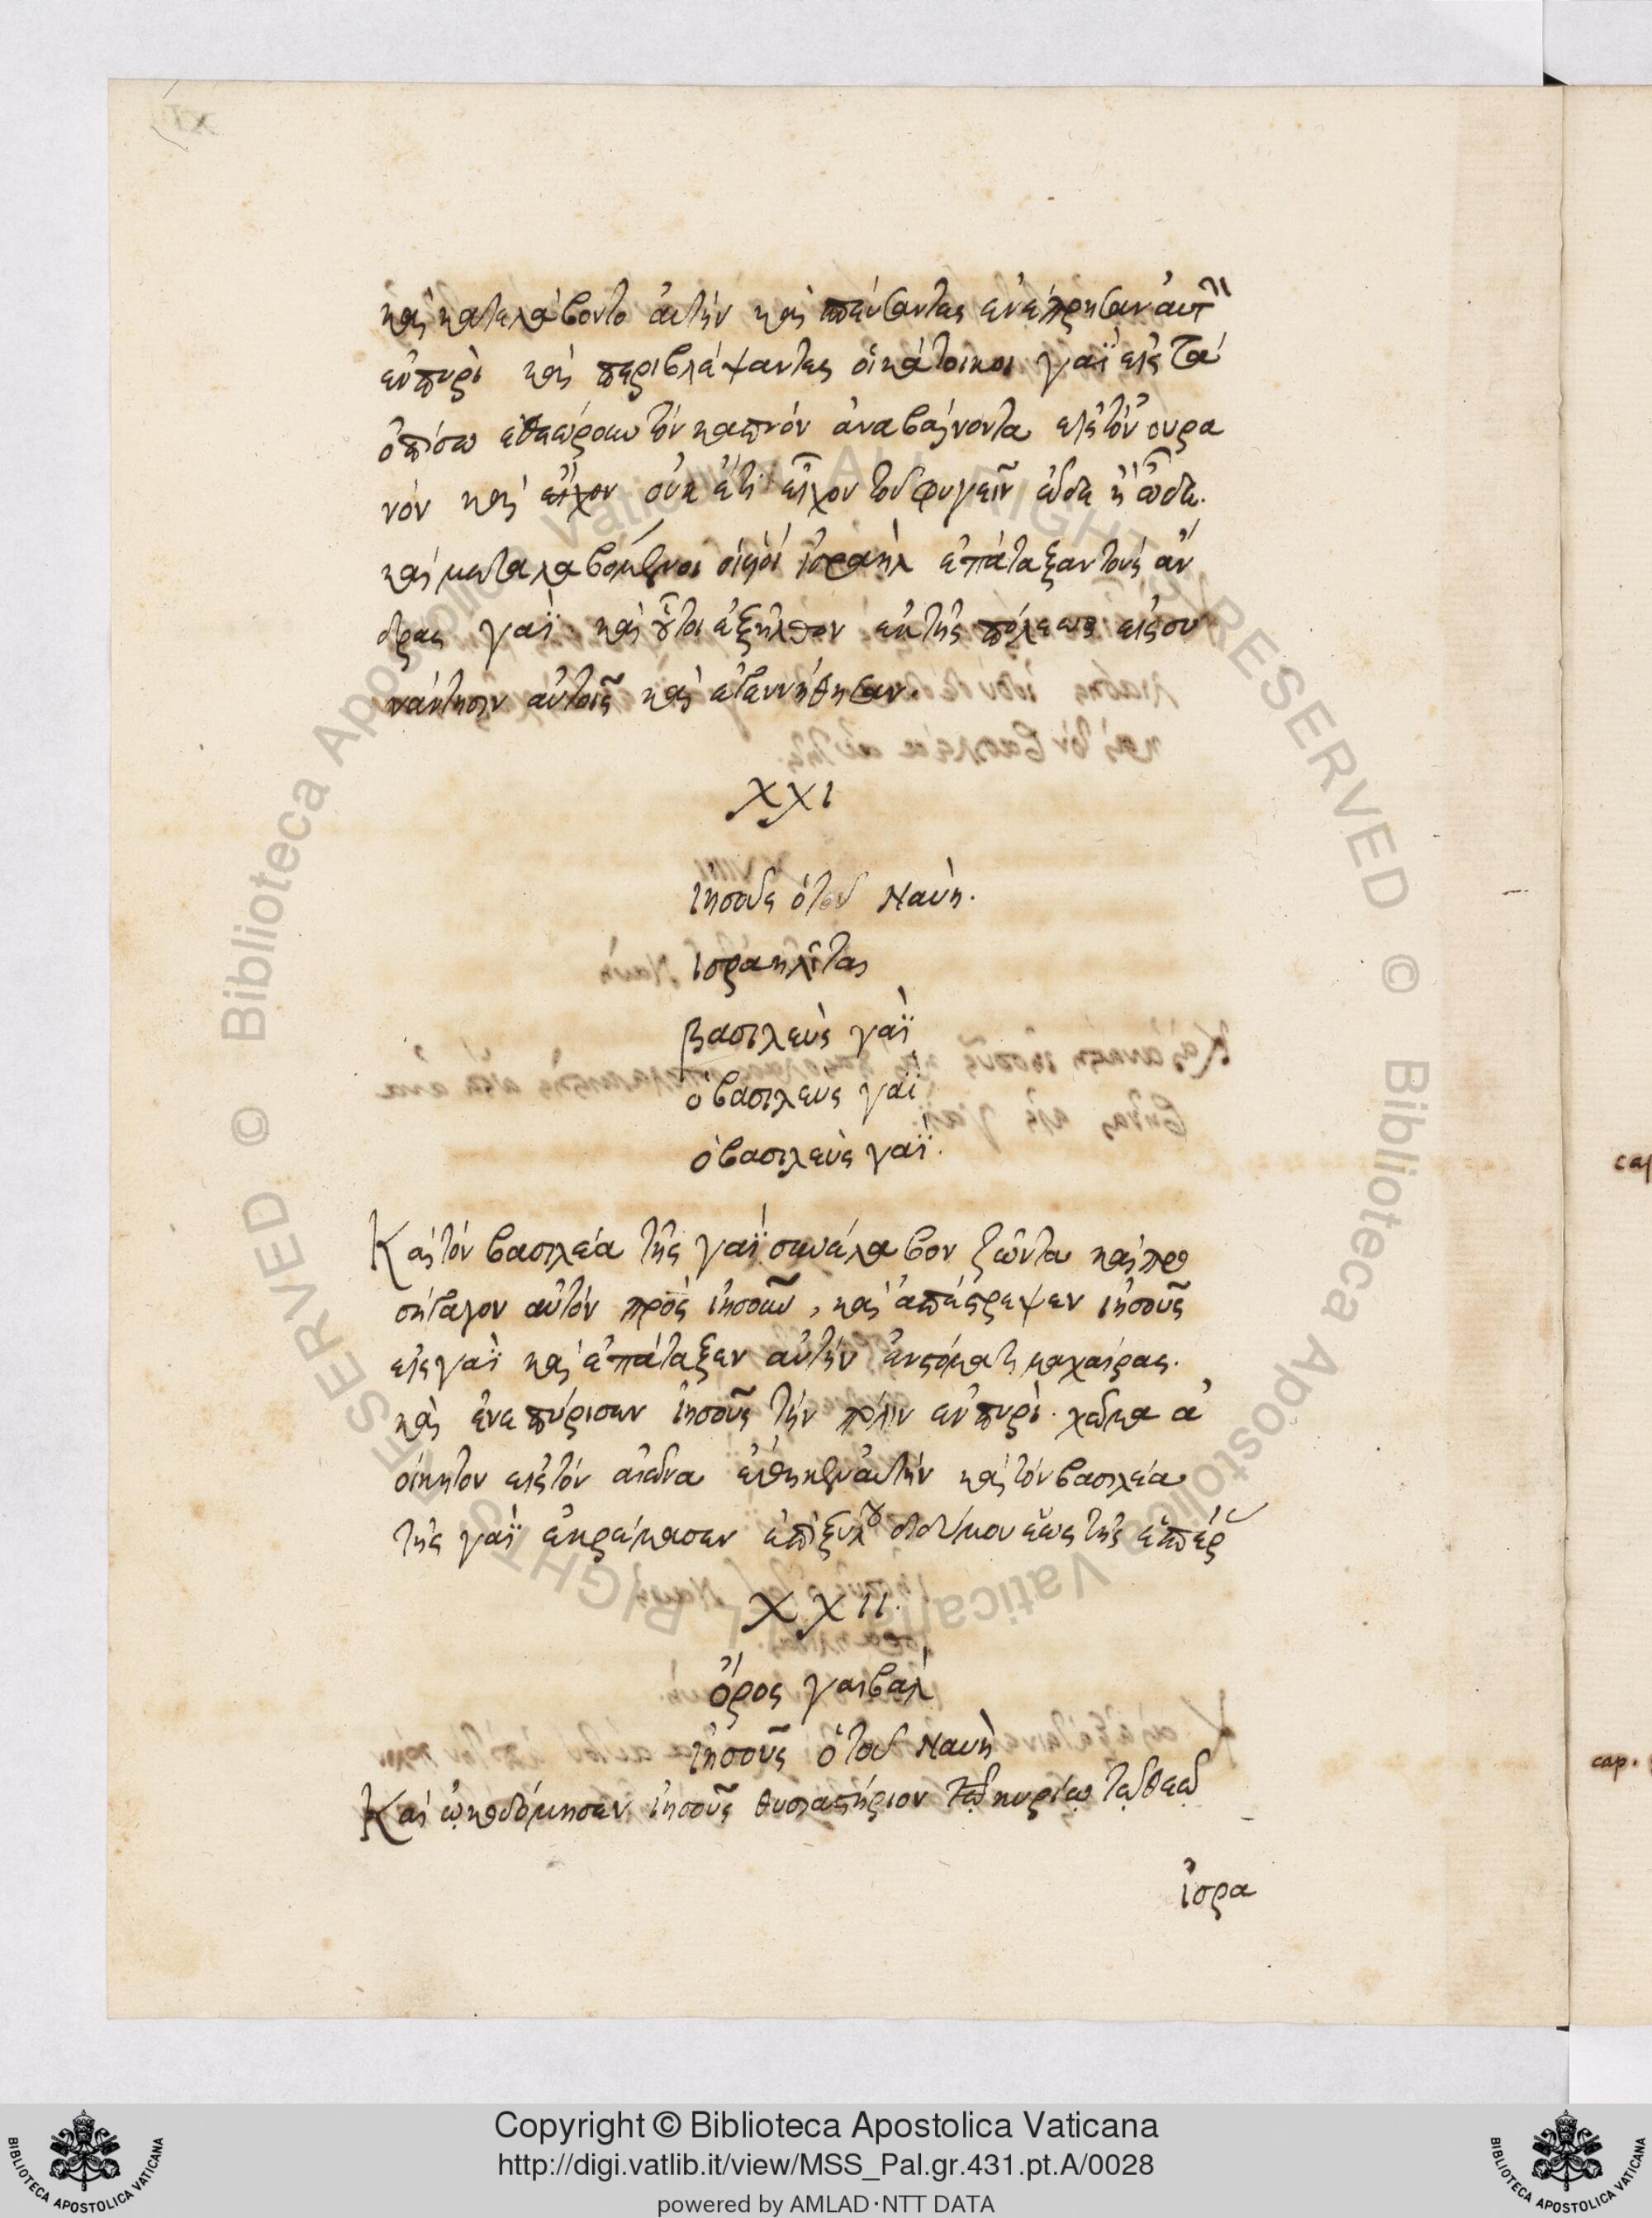 καὶ κατελάβοντο ἀυτὴν καὶ σπέυσαντες ἐνέπρησαν ἀυτὴν
ἐν πυρὶ καὶ περιβλέψαντες οἱ κάτοικοι γαῒ εἰς τὰ
ὀπίσω ἐθεώρουν τὸν καπνὸν ἀναβαίνοντα εἰς τὸν ουρα
νὸν καὶ οὐκ ἔτι εἶχον τοῦ φυγεῖν ὧδε ἢ ὧδε.
καὶ μεταλαβόμενοι οἱ υἱοί ἰσραὴλ ἐπάταξαν τοὺς ἄν
δρας γαῒ καὶ οὗτοι ἐξῆλθον ἐκ τῆς πόλεως εἰς συ
νάντησιν αὐτοῖς καὶ
XXI
Ιησοῦς ὁ τοῦ Ναυὴ.
Ισραηλῖται
βασιλεὺς γαῒ
ὁ βασιλευς γαῒ
ὁ βασιλεὺς γαῒ.
Καὶ τὸν βασιλέα τῆς γαῒ συνέλαβον ζῶντα καὶ προ
σήγαγον αὐτὸν πρὸς ἰησοῦν, καὶ ἀπέςρεψεν ἰησοῦς
εἰς γαῒ καὶ ἐπάταξεν αὐτὴν ἐν ςόματι μαχαίρας.
καὶ ἐνεπύρισεν ἰησοῦς τὴν πόλιν ἐν πυρὶ. χῶμα ἀ
οίκητον εἰς τὸν αἰῶνα ἔθηκεν ἀυτὴν καὶ τὸν βασιλέα
τῆς γαῒ ἐκρέμασεν ἐπὶ ξύλου διδύμου ἕως τῆς ἑσπέρ
XXII.
ὄρος γαιβαλ
Ιησοῦς ὁ τοῦ Ναυὴ
Καὶ ᾠκοδόμησεν ἰησοῦς θυσιαςήριον τῷ κυρίῳ τῷ θεῷ
ἰσρα
cap.
© Biblioteca Apostolica Vaticana ALL RIGHTS RESERVED © Biblioteca Apostolica Vaticana ALL RIGHTS RESERVED
Copyright © Biblioteca Apostolica Vaticana
http://digi.vatlib.it/view/MSS_Pal.gr.431.pt.A/0028
powered by AMLAD·NTT DATA
BIBLIOTECA APOSTOLICA VATICANA
BIBLIOTECA APOSTOLICA VATICANA